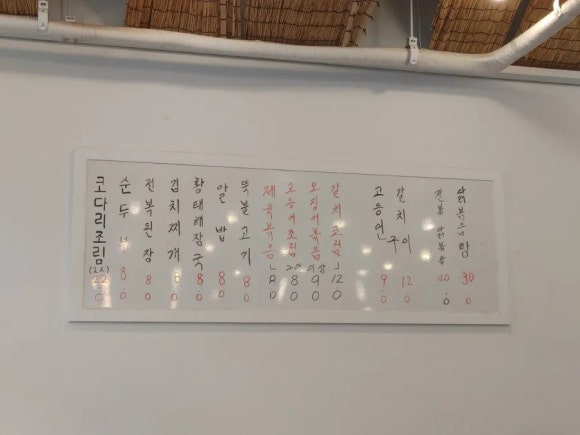 코다리조림 (2人) 22.0
순두부 8.0
전복된장 8.0
김치찌개 8.0
황태해장국 8.0
알밥 8.0
뚝불고기 8.0
제육볶음 9.0
고등어조림 8.0
오징어볶음 9.0
갈치조림 12.0
2인이상
고등어 9.0
갈치 12.0
구이
전복닭볶음
30.0
닭볶음탕 30.0